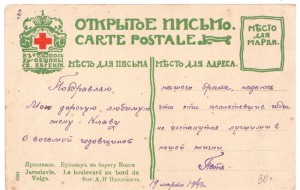 ОТКРЫТОЕ ПИСЬМО.
CARTE POSTALE.
МѢСТО ДЛЯ МАРКИ.
ВЪ ПОЛЬЗУ ОБЩИНЫ СВ. ЕВГЕНІИ.
МѢСТО ДЛЯ ПИСЬМА
МѢСТО ДЛЯ АДРЕСА.
Поздравляю,
Мою дорогую, любимую
жену - Клаву
С восьмой годовщиной
нашего брака, надеюсь
что эти пролетевшие годы
не останутся лучшими в
нашей жизни
Петя
19 марта
30-
Ярославль. Бульваръ на берегу Волги
Jaroslavle. Le boulevard au bord du
Volga.
Фот. А. Н. Павловича.